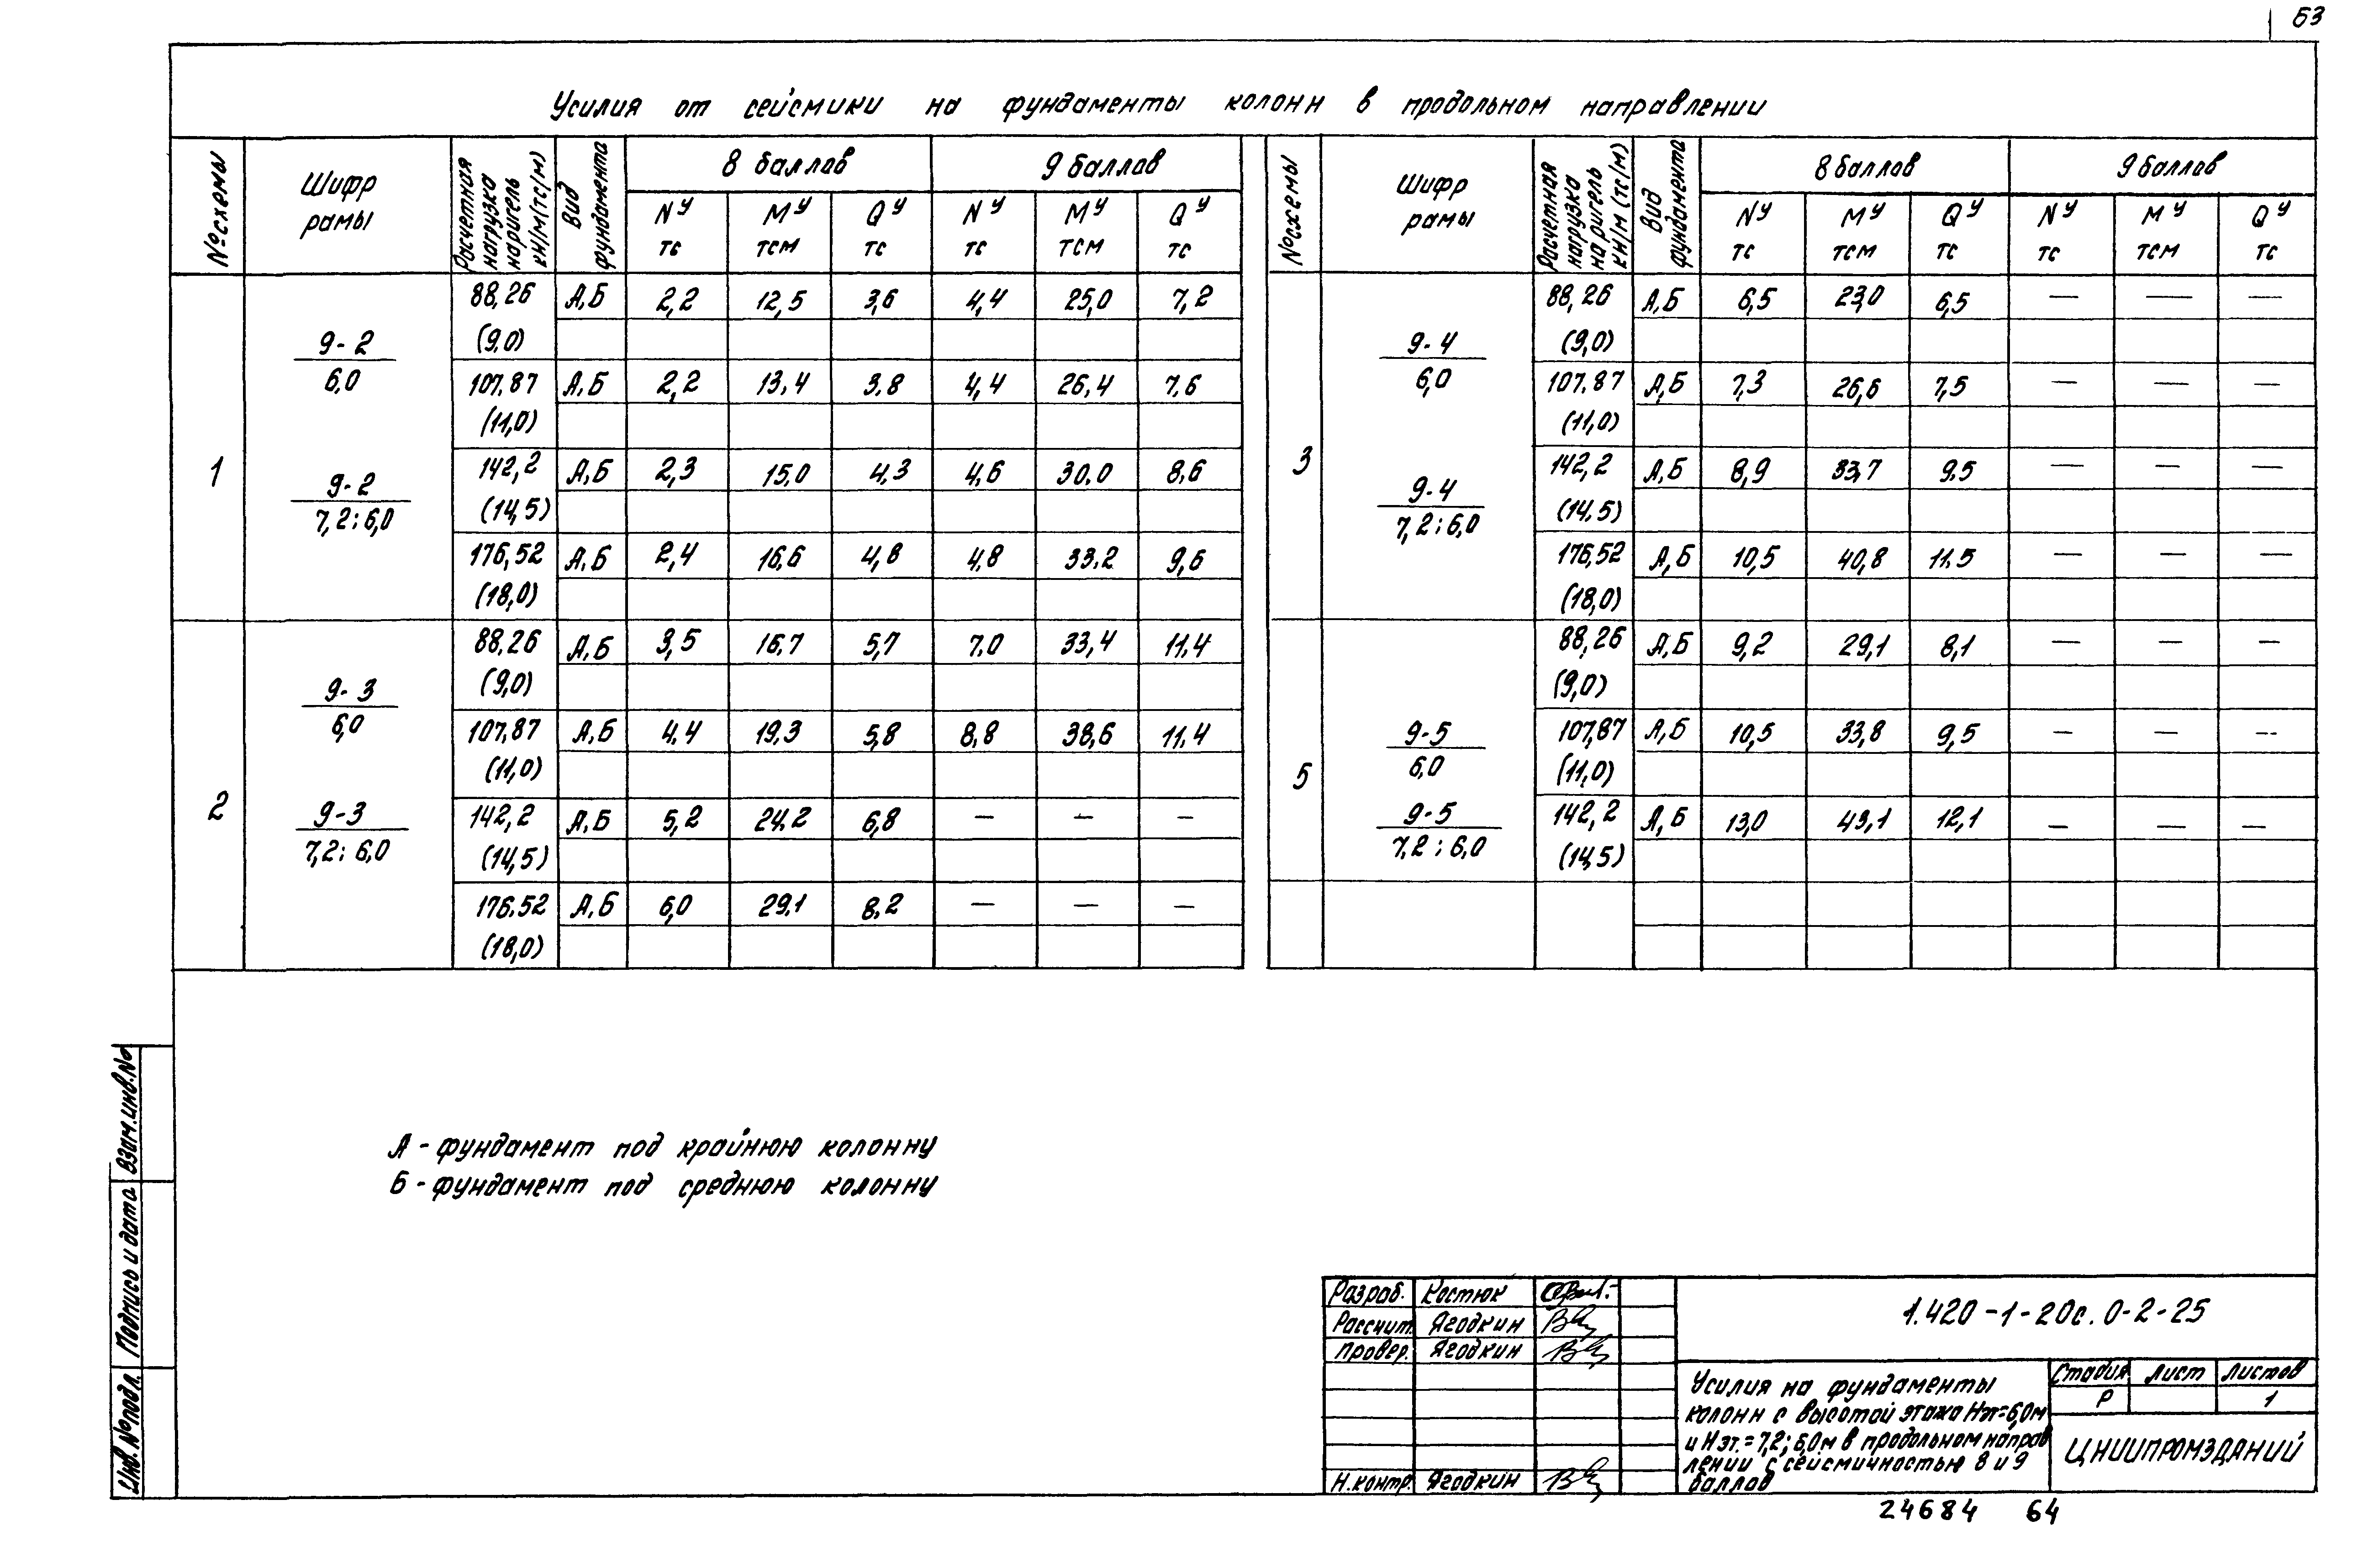 63
Усилия от сейсмики на фундаменты колонн в продольном направлении
№ схемы | Шифр рамы | Расчетная нагрузка на ригель кн/м (тс/м) | Вид фундамента | 8 баллов | 9 баллов
Nу тс | Mу тсм | Qу тс | Nу тс | Mу тсм | Qу тс
1 | 9-2 / 6,0 | 9-2 / 7,2; 6,0
88,26 (9,0) | А,Б | 2,2 | 12,5 | 3,6 | 4,4 | 25,0 | 7,2
107,87 (11,0) | А,Б | 2,2 | 13,4 | 3,8 | 4,4 | 26,4 | 7,6
142,2 (14,5) | А,Б | 2,3 | 15,0 | 4,3 | 4,6 | 30,0 | 8,6
176,52 (18,0) | А,Б | 2,4 | 16,6 | 4,8 | 4,8 | 33,2 | 9,6
2 | 9-3 / 6,0 | 9-3 / 7,2; 6,0
88,26 (9,0) | А,Б | 3,5 | 16,7 | 5,7 | 7,0 | 33,4 | 11,4
107,87 (11,0) | А,Б | 4,4 | 19,3 | 5,8 | 8,8 | 38,6 | 11,4
142,2 (14,5) | А,Б | 5,2 | 24,2 | 6,8 | — | — | —
176,52 (18,0) | А,Б | 6,0 | 29,1 | 8,2 | — | — | —
№ схемы | Шифр рамы | Расчетная нагрузка на ригель кн/м (тс/м) | Вид фундамента | 8 баллов | 9 баллов
Nу тс | Mу тсм | Qу тс | Nу тс | Mу тсм | Qу тс
3 | 9-4 / 6,0 | 9-4 / 7,2; 6,0
88,26 (9,0) | А,Б | 6,5 | 23,0 | 6,5 | — | — | —
107,87 (11,0) | А,Б | 7,3 | 26,6 | 7,5 | — | — | —
142,2 (14,5) | А,Б | 8,9 | 33,7 | 9,5 | — | — | —
176,52 (18,0) | А,Б | 10,5 | 40,8 | 11,5 | — | — | —
5 | 9-5 / 6,0 | 9-5 / 7,2; 6,0
88,26 (9,0) | А,Б | 9,2 | 29,1 | 8,1 | — | — | —
107,87 (11,0) | А,Б | 10,5 | 33,8 | 9,5 | — | — | —
142,2 (14,5) | А,Б | 13,0 | 43,1 | 12,1 | — | — | —
А - фундамент под крайнюю колонну
Б - фундамент под среднюю колонну
Взам. инв. №
Подпись и дата
Инв. № подл.
Разраб. Костюк
Рассчит. Ягодкин
Провер. Ягодкин
Н. контр. Ягодкин
1.420-1-20с.0-2-25
Усилия на фундаменты
колонн с высотой этажа Нэт=6,0м
и Нэт.=7,2; 6,0м в продольном направ
лении с сейсмичностью 8 и 9
баллов
Стадия Лист Листов
Р 1
ЦНИИПРОМЗДАНИЙ
24684 64